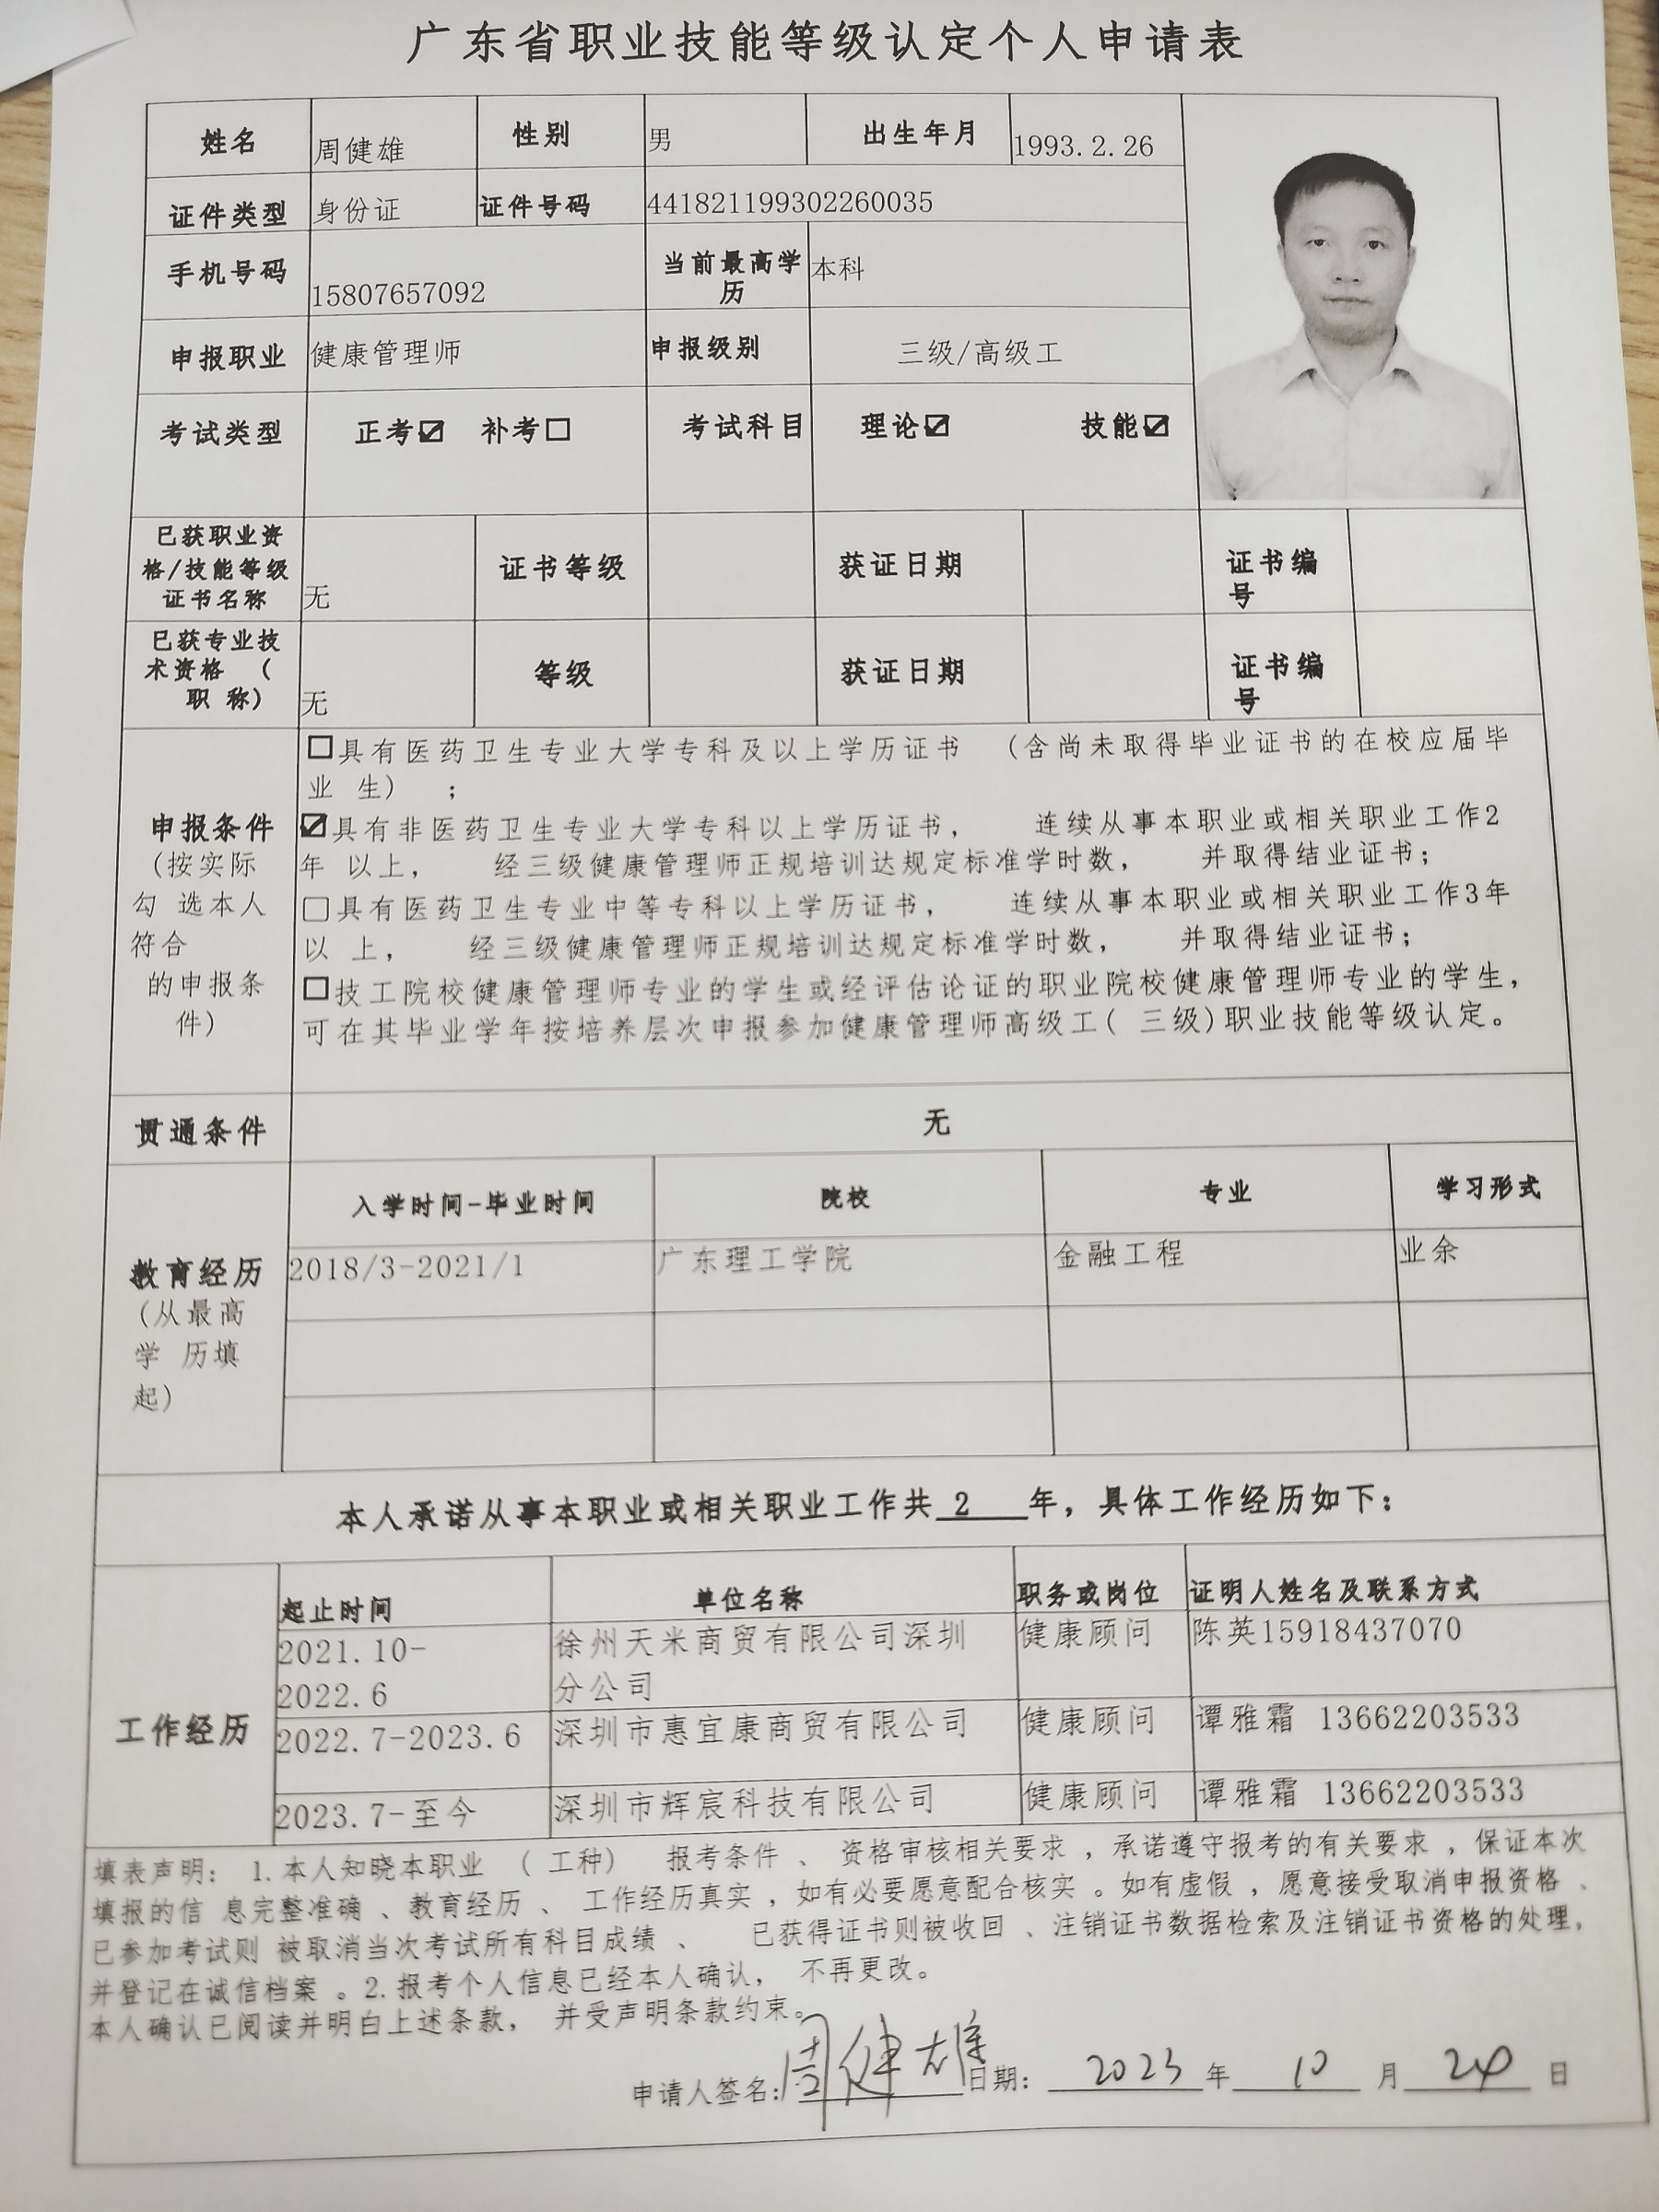 广东省职业技能等级认定个人申请表
姓名 周健雄 性别 男 出生年月 1993.2.26
证件类型 身份证 证件号码 441821199302260035
手机号码 15807657092 当前最高学历 本科
申报职业 健康管理师 申报级别 三级/高级工
考试类型 正考☑ 补考☐ 考试科目 理论☑ 技能☑
已获职业资格/技能等级证书名称 无 证书等级 获证日期 证书编号
已获专业技术资格 (职 称) 无 等级 获证日期 证书编号
申报条件
(按实际
勾 选本人
符合
的申报条
件)
☐具有医药卫生专业大学专科及以上学历证书 (含尚未取得毕业证书的在校应届毕
业 生) ;
☑具有非医药卫生专业大学专科以上学历证书, 连续从事本职业或相关职业工作2
年 以上, 经三级健康管理师正规培训达规定标准学时数, 并取得结业证书;
☐具有医药卫生专业中等专科以上学历证书, 连续从事本职业或相关职业工作3年
以 上, 经三级健康管理师正规培训达规定标准学时数, 并取得结业证书;
☐技工院校健康管理师专业的学生或经评估论证的职业院校健康管理师专业的学生,
可在其毕业学年按培养层次申报参加健康管理师高级工( 三级)职业技能等级认定。
贯通条件 无
教育经历
(从最高
学 历填
起)
入学时间-毕业时间 院校 专业 学习形式
2018/3-2021/1 广东理工学院 金融工程 业余
本人承诺从事本职业或相关职业工作共 2 年, 具体工作经历如下:
工作经历
起止时间 单位名称 职务或岗位 证明人姓名及联系方式
2021.10-2022.6 徐州天米商贸有限公司深圳分公司 健康顾问 陈英15918437070
2022.7-2023.6 深圳市惠宜康商贸有限公司 健康顾问 谭雅霜 13662203533
2023.7-至今 深圳市辉宸科技有限公司 健康顾问 谭雅霜 13662203533
填表声明: 1.本人知晓本职业 ( 工种) 报考条件 、 资格审核相关要求 , 承诺遵守报考的有关要求 , 保证本次
填报的信 息完整准确 、 教育经历 、 工作经历真实 , 如有必要愿意配合核实 。如有虚假 , 愿意接受取消申报资格 、
已参加考试则 被取消当次考试所有科目成绩 、 已获得证书则被收回 、注销证书数据检索及注销证书资格的处理,
并登记在诚信档案 。2.报考个人信息已经本人确认, 不再更改。
本人确认已阅读并明白上述条款, 并受声明条款约束。
申请人签名: 周健雄 日期: 2023 年 10 月 24 日